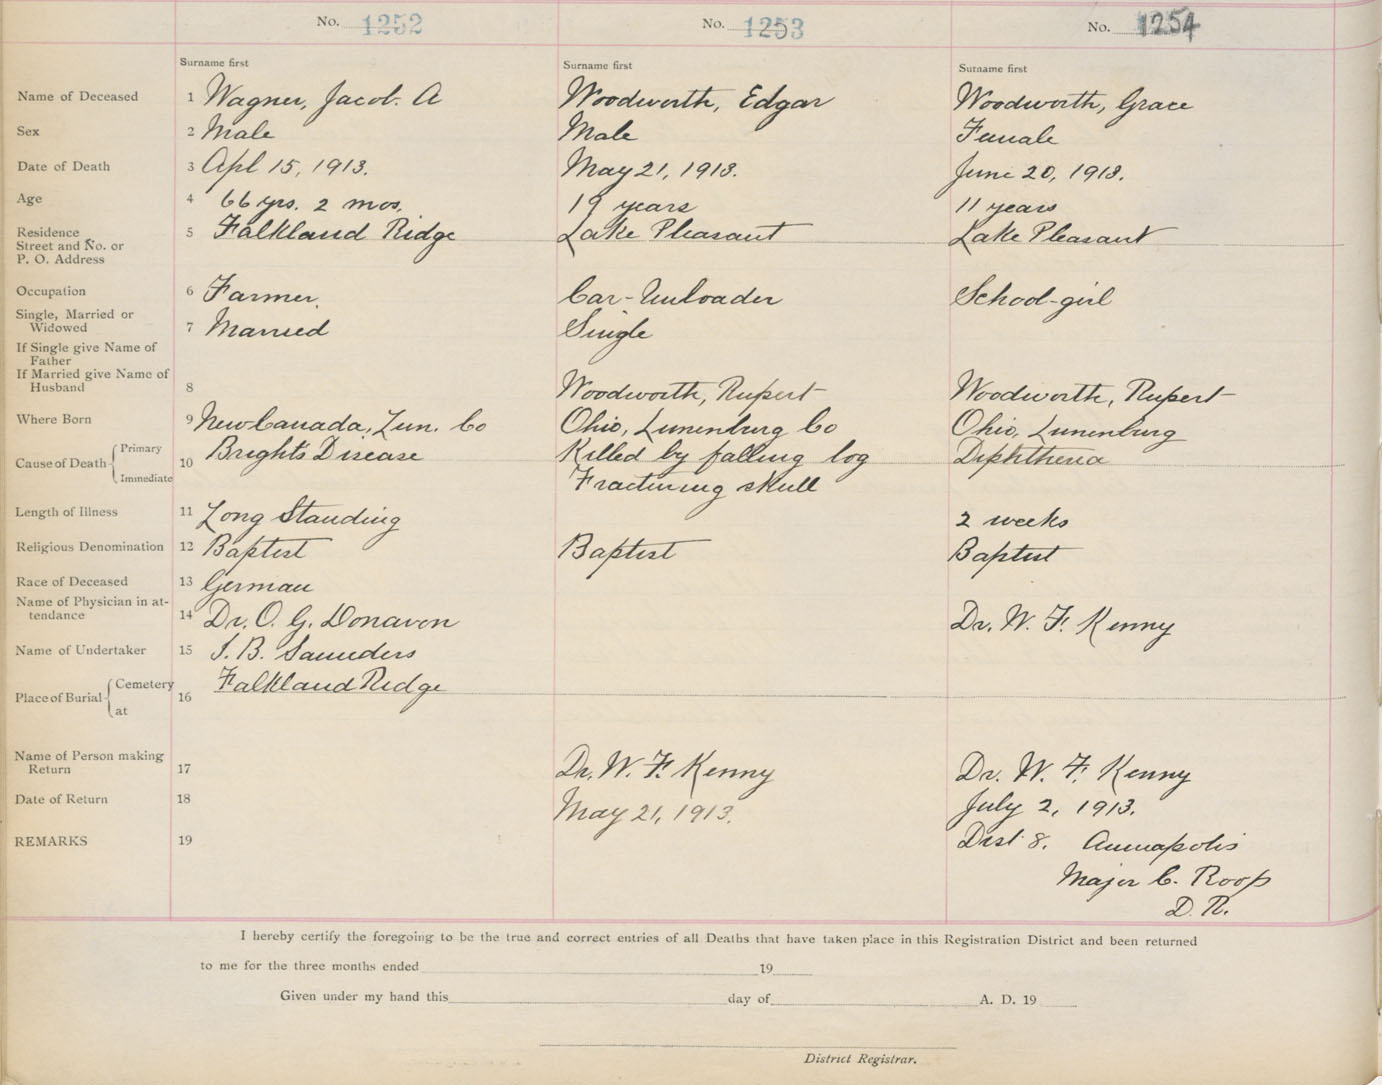 No. 1252
No. 1253
No. 1254
Surname first
Surname first
Surname first
Name of Deceased 1 Wagner, Jacob. A Woodworth, Edgar Woodworth, Grace
Sex 2 Male Male Female
Date of Death 3 Apl 15, 1913. May 21, 1913. June 20, 1913.
Age 4 66 yrs. 2 mos. 19 years 11 years
Residence
Street and No. or 5 Falkland Ridge Lake Pleasant Lake Pleasant
P. O. Address
Occupation 6 Farmer. Car-Unloader School-girl
Single, Married or
Widowed 7 Married Single
If Single give Name of
Father
If Married give Name of
Husband 8 Woodworth, Rupert Woodworth, Rupert
Where Born 9 New Canada, Lun. Co Ohio, Lunenburg Co Ohio, Lunenburg
Cause of Death Primary
Immediate 10 Brights Disease Killed by falling log Diphtheria
Fracturing skull
Length of Illness 11 Long Standing 2 weeks
Religious Denomination 12 Baptist Baptist Baptist
Race of Deceased 13 German
Name of Physician in at-
tendance 14 Dr. O. G. Donavon Dr. W. F. Kenny
Name of Undertaker 15 I. B. Saunders
Place of Burial Cemetery
at 16 Falkland Ridge
Name of Person making
Return 17 Dr. W. F. Kenny Dr. W. F. Kenny
Date of Return 18 May 21, 1913. July 2, 1913.
REMARKS 19 Dist 8. Annapolis
Major C. Roop
D. R.
I hereby certify the foregoing to be the true and correct entries of all Deaths that have taken place in this Registration District and been returned
to me for the three months ended 19
Given under my hand this day of A. D. 19
District Registrar.